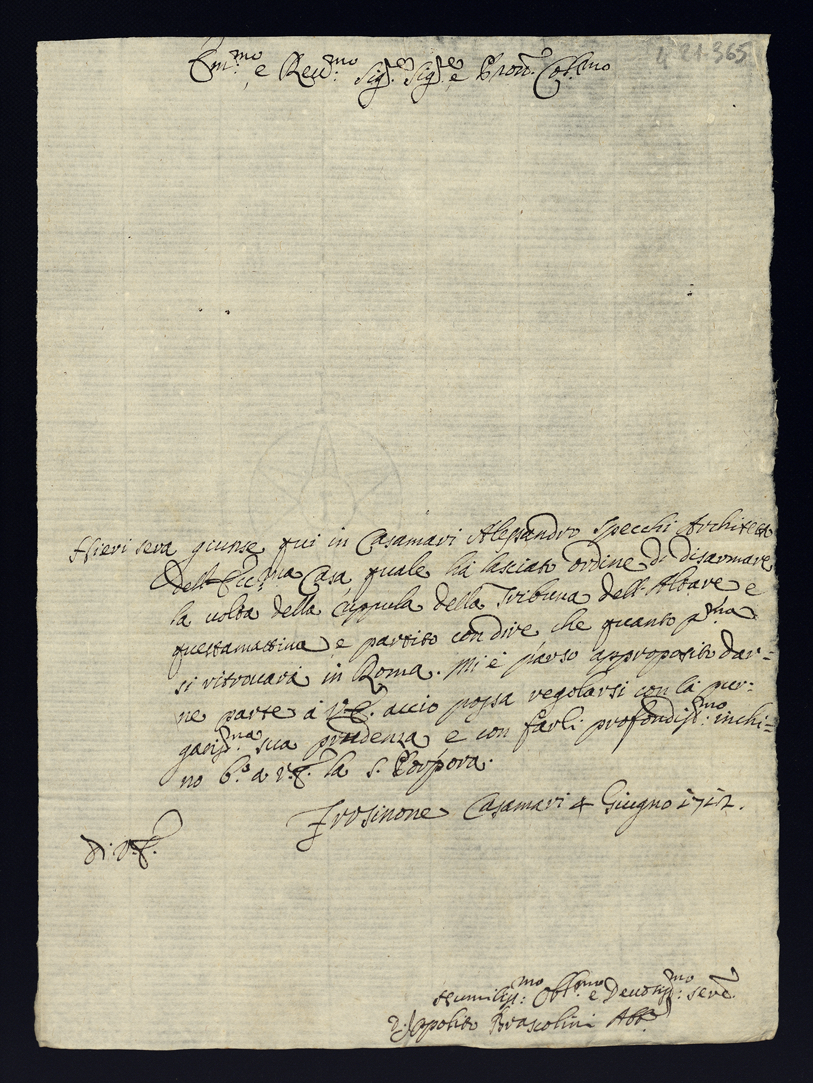 4 21-365
Em.mo e Reu.mo Sig.re Sig.re e Pron. Col.mo
Hieri sera giunse qui in Casamari Alessandro Specchi Architett
dell Ecc.ma Casa quale ha lasciato ordine di disarmare
la volta della cuppula della Tribuna dell'Altare e
questamattina è partito con dire che quanto p.ma
si ritrouarà in Roma. Mi è parso approposito dar=
ne parte à V.E. acciò possa regolarsi con la pur=
gatis.ma sua prudenza e con farli profondis.mo inchi=
no b.o a V.E. la S. Porpora.
Frosinone Casamari 4 Giugno 1712.
Di V.E.
Humilis.mo Obl.mo e Deuotis.mo seru.
Ippolito Abb.